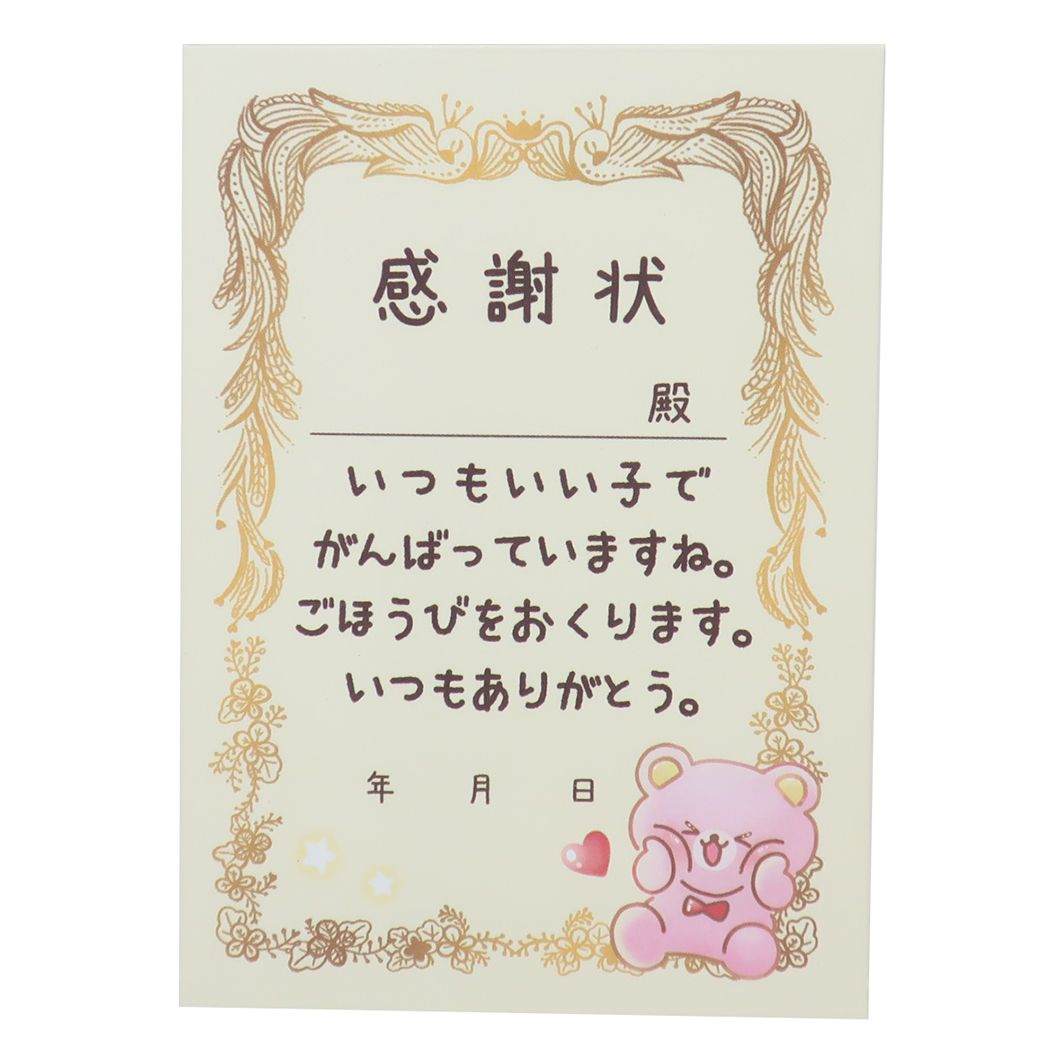 感謝状
殿
いつもいい子で
がんばっていますね。
ごほうびをおくります。
いつもありがとう。
年 月 日